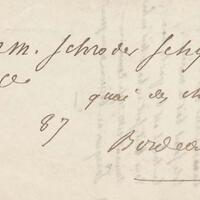 m. Schroder Schy
quai des ch
87
Bordea